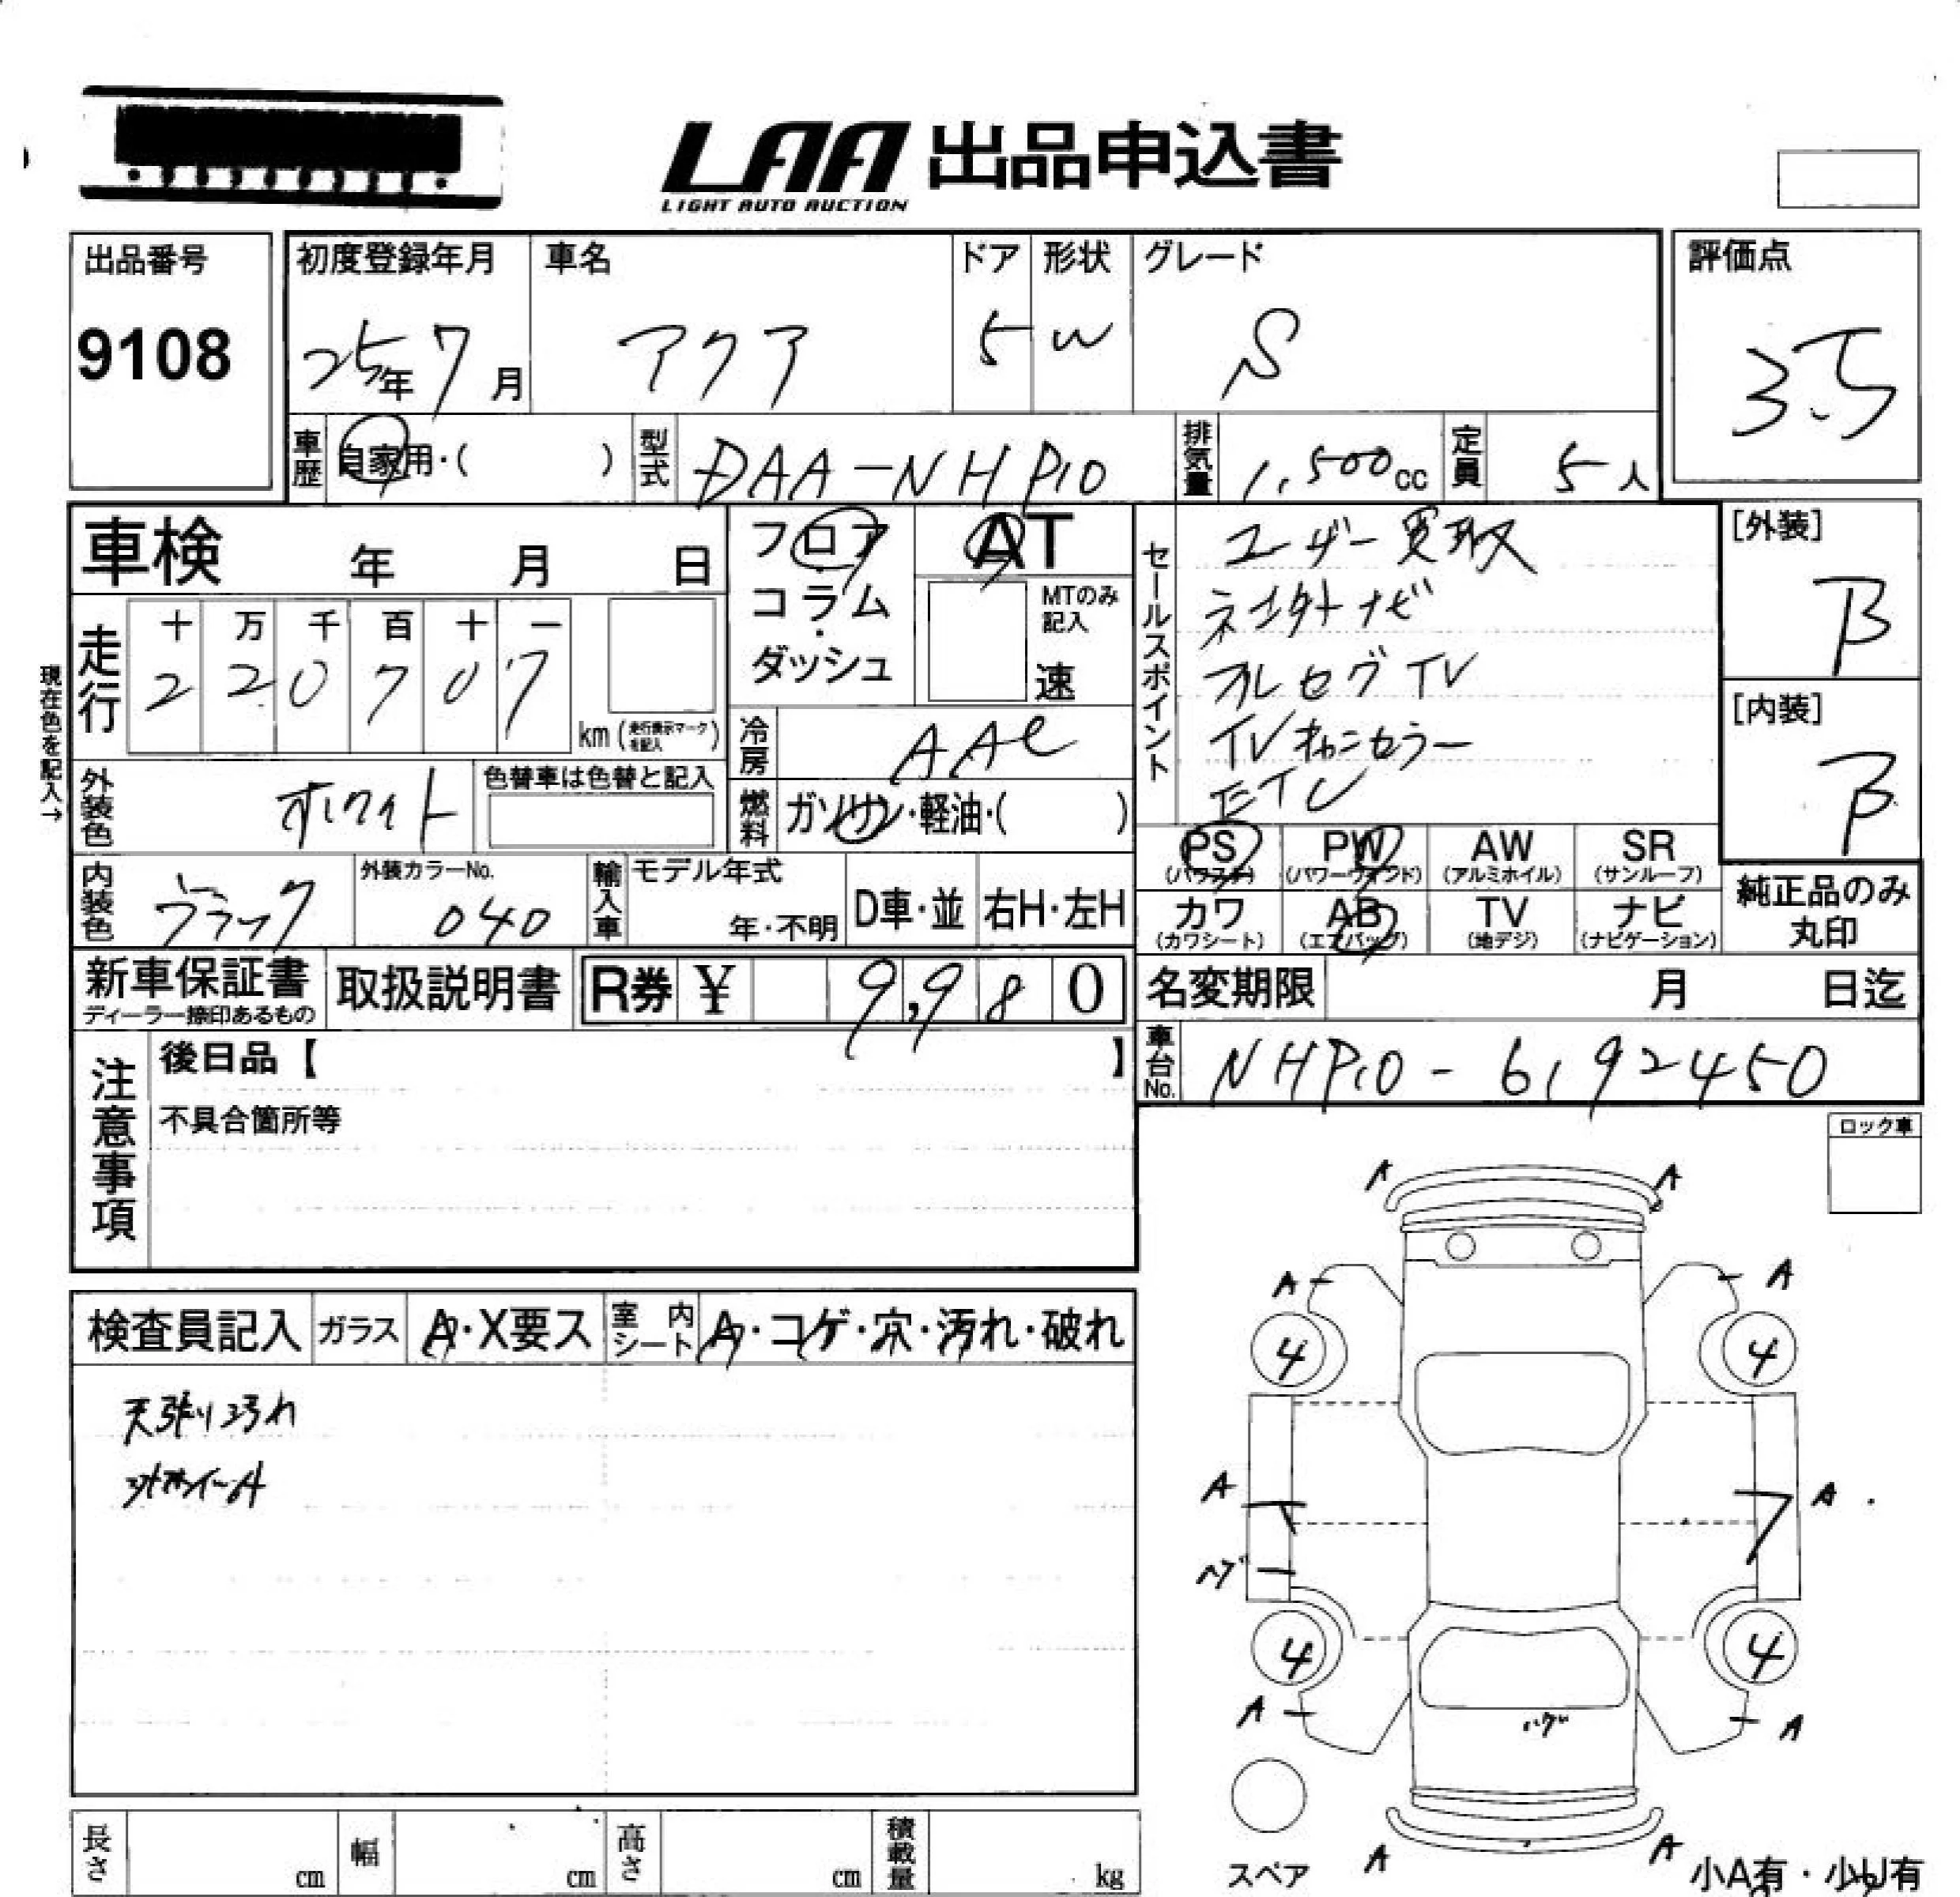 LAA 出品申込書
LIGHT AUTO AUCTION
出品番号
9108
初度登録年月
25年 7月
車名
アクア
ドア
5
形状
W
グレード
S
評価点
3.5
車歴
自家用・( )
型式
DAA-NHP10
排気量
1,500cc
定員
5人
車検 年 月 日
フロア・コラム・ダッシュ
AT
MTのみ記入
速
セールスポイント
ユーザー買取
ネン外ナビ
フルセグTV
TVキャンセラー
ETC
[外装]
B
[内装]
B
現在色を記入→
走行
十 万 千 百 十 一
2 2 0 7 0 7
km (走行表示マークを記入)
冷房
AAC
燃料
ガソリン・軽油・( )
外装色
ホワイト
色替車は色替と記入
内装色
ブラック
外装カラーNo.
040
輸入車
モデル年式
年・不明
D車・並
右H・左H
PS
(パワステ)
PW
(パワーウィンド)
AW
(アルミホイル)
SR
(サンルーフ)
カワ
(カワシート)
AB
(エアバッグ)
TV
(地デジ)
ナビ
(ナビゲーション)
純正品のみ
丸印
新車保証書
ディーラー捺印あるもの
取扱説明書
R券 ¥ 9,980
名変期限 月 日迄
車台No.
NHP10-6192450
注意事項
後日品【 】
不具合箇所等
ロック車
検査員記入
ガラス
A・X要ス
室内シート
A・コゲ・穴・汚れ・破れ
天張り汚れ
外ホイールA
A A
A A
4 4
A A
ハゲ
4 4
A A
ハゲ
A A
スペア
小A有・小U有
長さ cm
幅 cm
高さ cm
積載量 kg